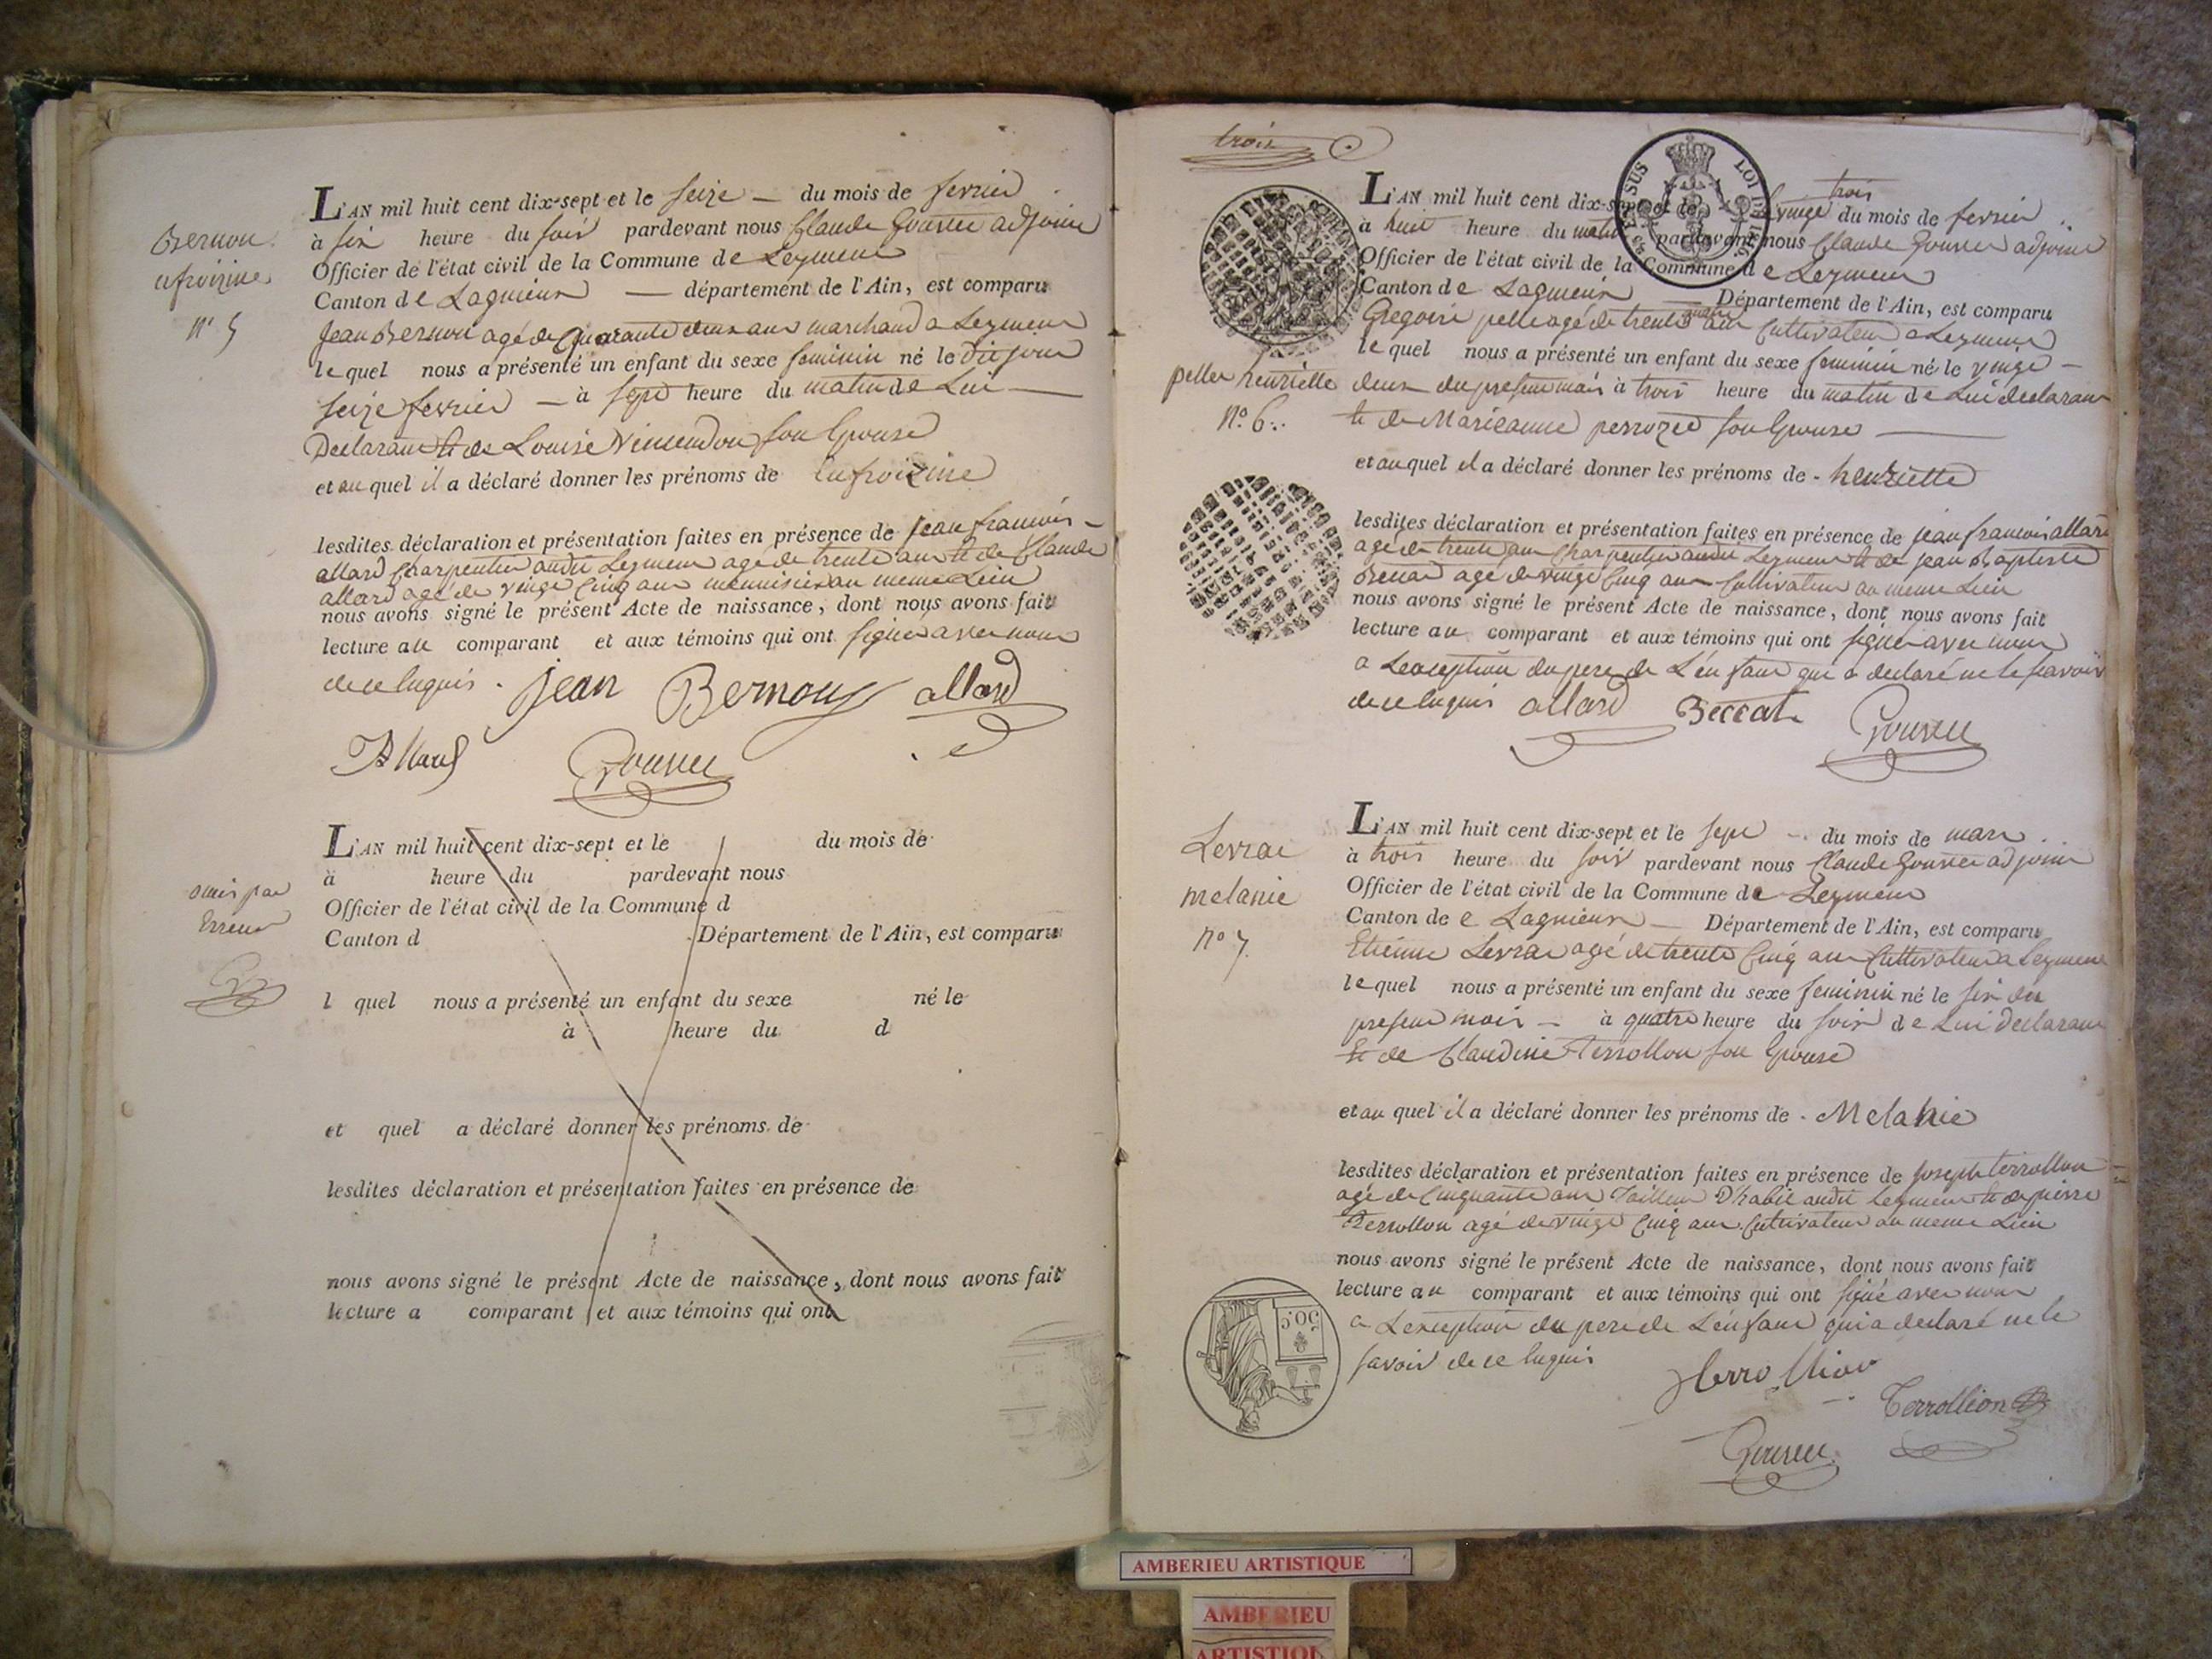 Bernou
eufroizine
n° 5
L'AN mil huit cent dix-sept et le seize — du mois de fevrier
à six heure du soir pardevant nous Claude Gourrer adjoint
Officier de l'état civil de la Commune de Leyment
Canton de Lagnieux — département de l'Ain, est comparu
Jean Bernou agé de quarante deux ans marchand a Leyment
le quel nous a présenté un enfant du sexe feminin né le dit jour
seize fevrier — à sept heure du matin de Lui —
Declarant et de Louise Vincendon son Epouse
et au quel il a déclaré donner les prénoms de Eufroizine
lesdites déclaration et présentation faites en présence de jean francois —
allard charpentier audit Leyment agé de trente ans et de Claude
allard agé de vingt cinq ans menuisier au meme Lieu
nous avons signé le présent Acte de naissance, dont nous avons fait
lecture au comparant et aux témoins qui ont signés avec nous
de ce Enquis. Jean Bernoux allard
Allard Gourrer
omis par
Erreur
L'AN mil huit cent dix-sept et le du mois de
à heure du pardevant nous
Officier de l'état civil de la Commune d
Canton d Département de l'Ain, est comparu
l quel nous a présenté un enfant du sexe né le
à heure du d
et quel a déclaré donner les prénoms de
lesdites déclaration et présentation faites en présence de
nous avons signé le présent Acte de naissance, dont nous avons fait
lecture a comparant et aux témoins qui ont
trois
L'AN mil huit cent dix-sept et le vingt trois du mois de fevrier
à huit heure du matin pardevant nous Claude Gourrer adjoint
Officier de l'état civil de la Commune de Leyment
Canton de Lagnieux — Département de l'Ain, est comparu
Gregoire pellet agé de trente quatre ans Cultivateur a Leyment
le quel nous a présenté un enfant du sexe feminin né le vingt —
pellet henriette
n° 6
deux du present mois à trois heure du matin de Lui declarant
et de Marieanne perrozet son Epouse —
et au quel il a déclaré donner les prénoms de - henriette
lesdites déclaration et présentation faites en présence de jean francois allard
agé de trente ans Charpentier audit Leyment et de jean Baptiste
Beccat agé de vingt cinq ans Cultivateur au meme Lieu
nous avons signé le présent Acte de naissance, dont nous avons fait
lecture au comparant et aux témoins qui ont signé avec nous
a Lexception du pere de Lenfant qui a declaré ne le savoir
de ce Enquis allard Beccat Gourrer
Levrat
melanie
n° 7
L'AN mil huit cent dix-sept et le sept — du mois de mars
à trois heure du soir pardevant nous Claude Gourrer adjoint
Officier de l'état civil de la Commune de Leyment
Canton de e Lagnieux — Département de l'Ain, est comparu
Etienne Levrat agé de trente cinq ans Cultivateur a Leyment
le quel nous a présenté un enfant du sexe feminin né le six du
present mois — à quatre heure du soir de Lui Declarant
Et de Claudine Terrollon son Epouse
et au quel il a déclaré donner les prénoms de - Melanie
lesdites déclaration et présentation faites en présence de joseph terrollon
agé de Cinquante ans Tailleur D'habit audit Leyment et de pierre
Terrollon agé de vingt cinq ans Cultivateur au meme Lieu
nous avons signé le présent Acte de naissance, dont nous avons fait
lecture au comparant et aux témoins qui ont signé avec nous
a Lexception du pere de Lenfant qui a declaré ne le
savoir de ce Enquis
Terrollion
Gourrer
50 C
AMBERIEU ARTISTIQUE
AMBERIEU
ARTISTIQ